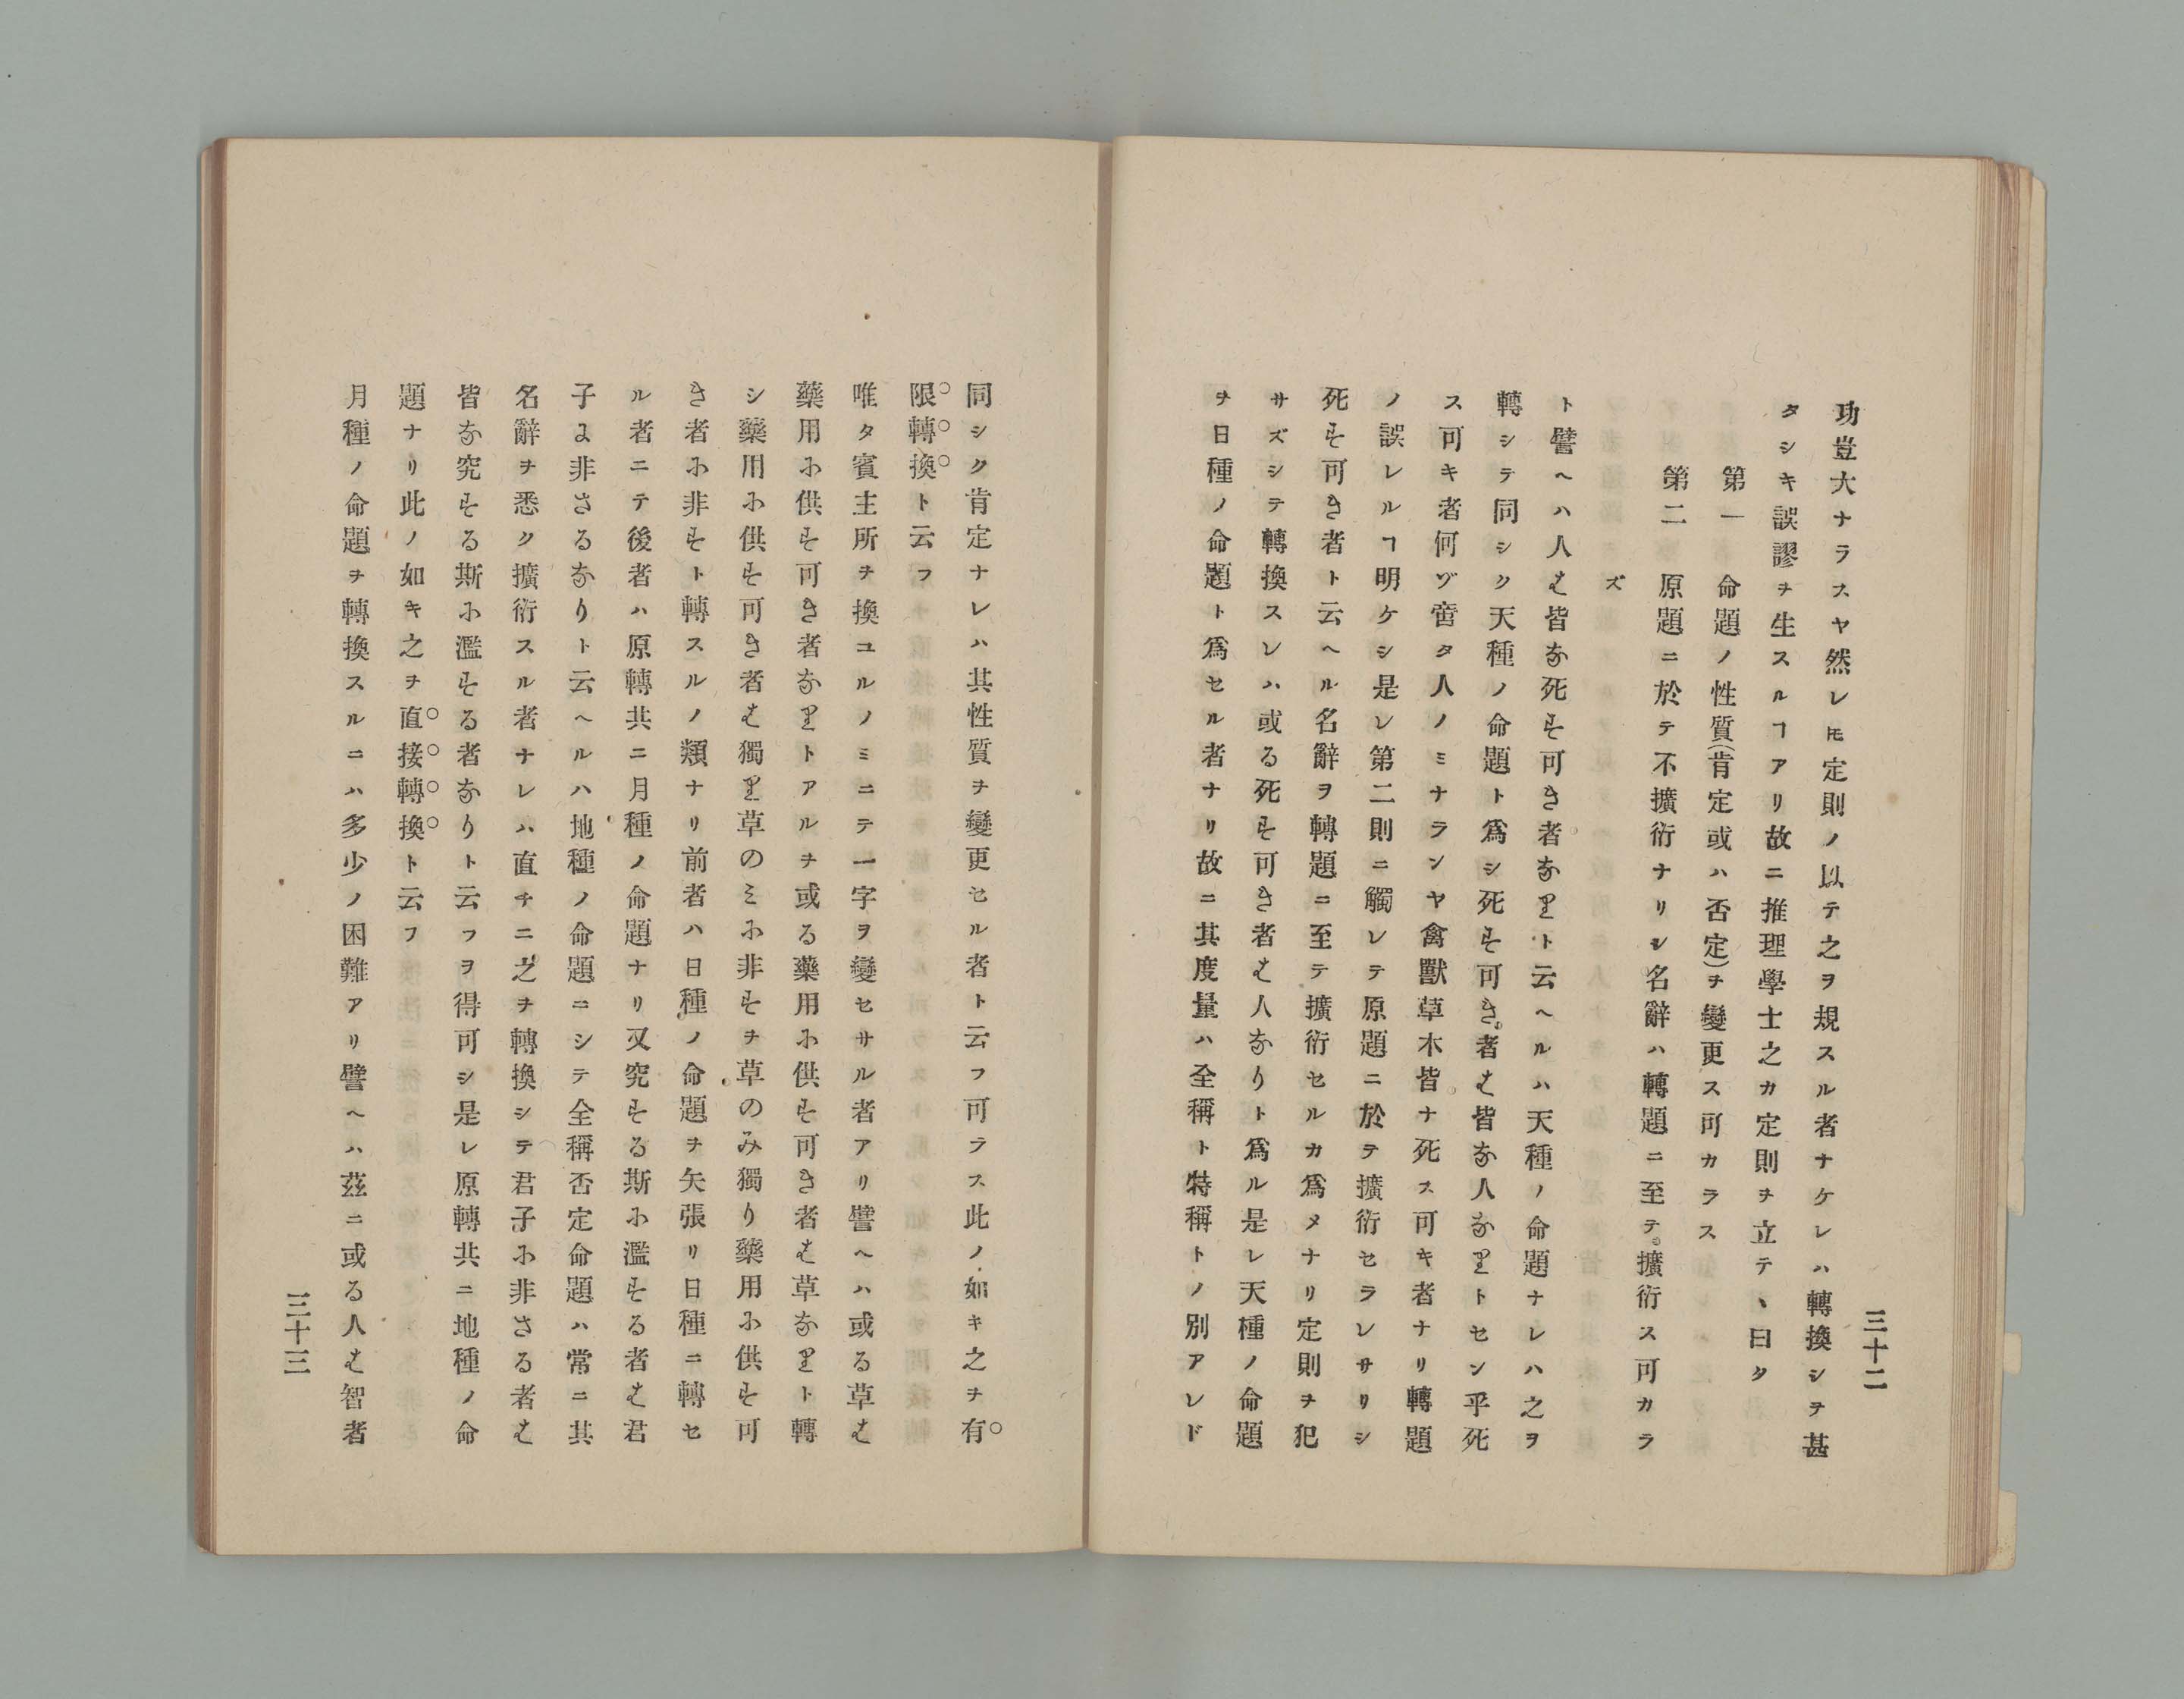 三十二
功豈大ナラスヤ然レ𪜈定則ノ以テ之ヲ規スル者ナケレハ轉換シテ甚
タシキ誤謬ヲ生スルヿアリ故ニ推理學士之カ定則ヲ立テヽ曰タ
第一　命題ノ性質(肯定或ハ否定)ヲ變更ス可カラス
第二　原題ニ於テ不擴衍ナリシ名辭ハ轉題ニ至テ擴衍ス可カラ
ズ
ト譬ヘハ人は皆な死す可き者なりト云ヘルハ天種ノ命題ナレハ之ヲ
轉シテ同シク天種ノ命題ト爲シ死す可き者は皆な人なりトセン乎死
ス可キ者何ヅ啻タ人ノミナランヤ禽獸草木皆ナ死ス可キ者ナリ轉題
ノ誤レルヿ明ケシ是レ第二則ニ觸レテ原題ニ於テ擴衍セラレサリシ
死す可き者ト云ヘル名辭ヲ轉題ニ至テ擴衍セルカ爲メナリ定則ヲ犯
サズシテ轉換スレハ或る死す可き者は人なりト爲ル是レ天種ノ命題
ヲ日種ノ命題ト爲セル者ナリ故ニ其度量ハ全稱ト特稱トノ別アレド
同シク肯定ナレハ其性質ヲ變更セル者ト云フ可ラス此ノ如キ之ヲ有
限轉換ト云フ
唯タ賓主所ヲ換ユルノミニテ一字ヲ變セサル者アリ譬ヘハ或る草は
藥用に供す可き者なりトアルヲ或る藥用に供す可き者は草なりト轉
シ藥用に供す可き者は獨り草のミに非すヲ草のみ獨り藥用に供す可
き者に非すト轉スルノ類ナリ前者ハ日種ノ命題ヲ矢張リ日種ニ轉セ
ル者ニテ後者ハ原轉共ニ月種ノ命題ナリ又究する斯に濫する者は君
子よ非さるなりト云ヘルハ地種ノ命題ニシテ全稱否定命題ハ常ニ其
名辭ヲ悉ク擴衍スル者ナレハ直チニ之ヲ轉換シテ君子に非さる者は
皆な究する斯に濫する者なりト云フヲ得可シ是レ原轉共ニ地種ノ命
題ナリ此ノ如キ之ヲ直接轉換ト云フ
月種ノ命題ヲ轉換スルニハ多少ノ困難アリ譬ヘハ茲ニ或る人は智者
三十三